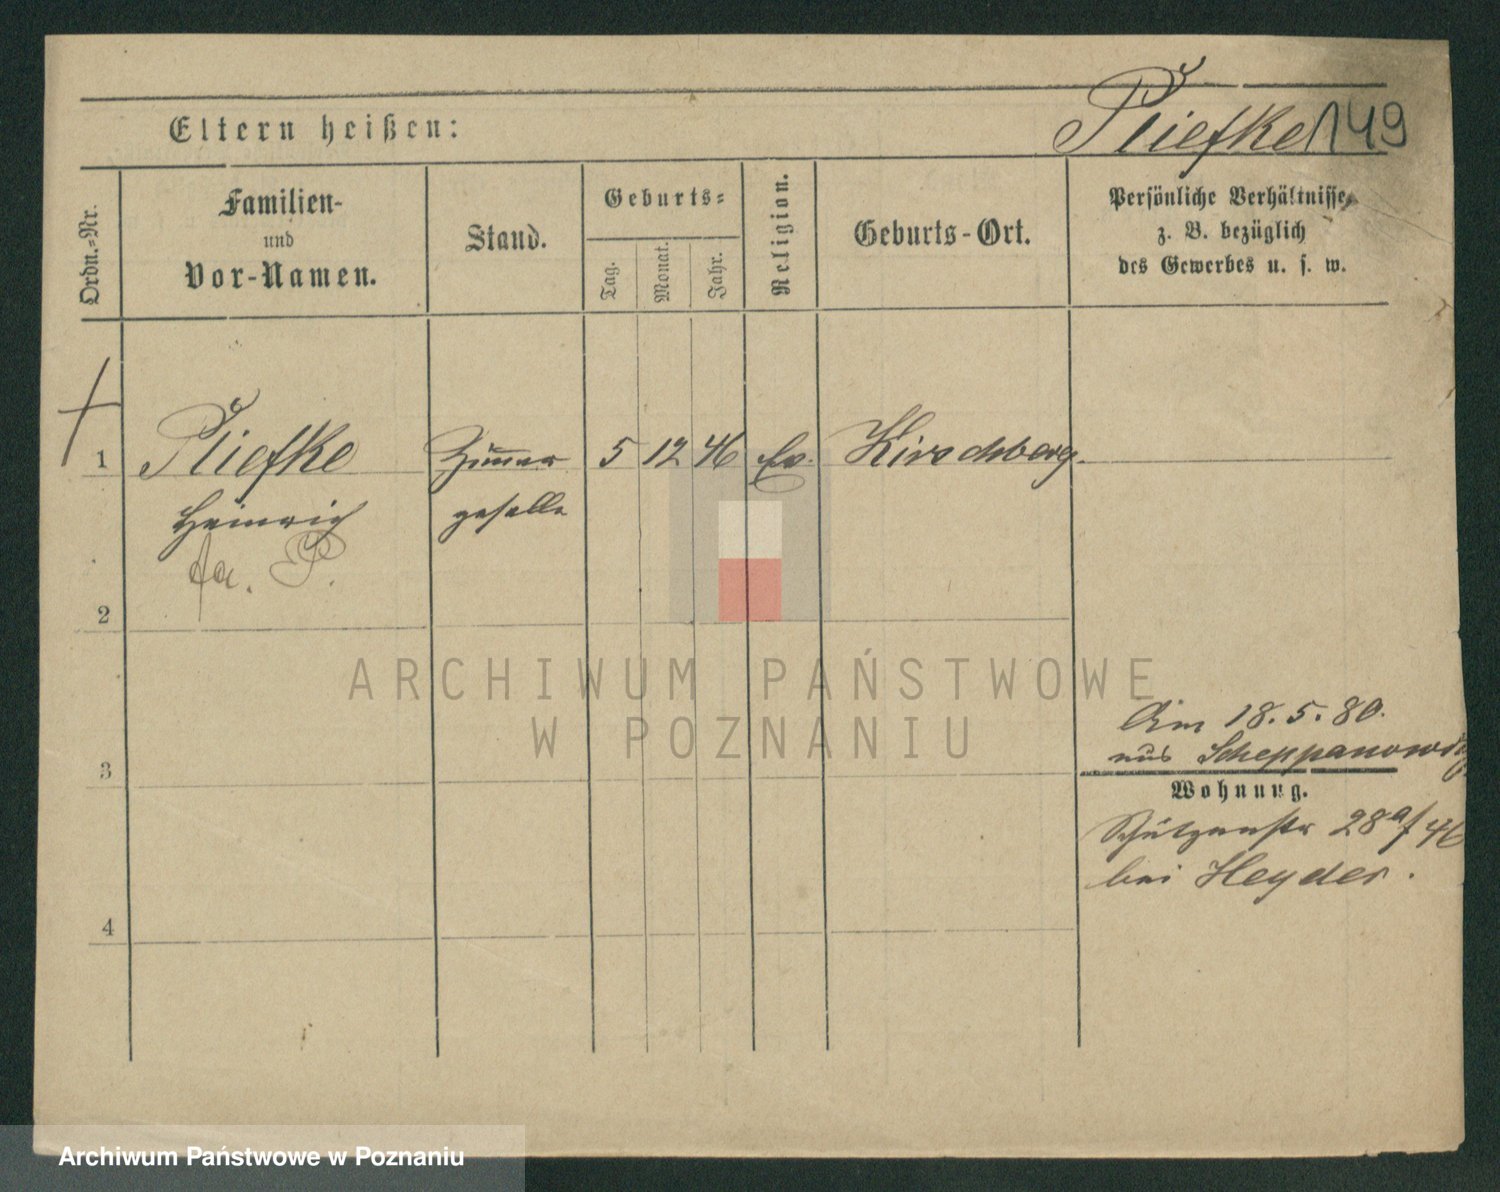 Pliefke 149
Eltern heißen:
Ordn.-Nr.
Familien-
und
Vor-Namen.
Stand.
Geburts-
Tag.
Monat.
Jahr.
Religion.
Geburts-Ort.
Persönliche Verhältnisse,
z. B. bezüglich
des Gewerbes u. s. w.
1 Pliefke Zimmer 5 12 46 Ev. Kirschberg.
Heinrich geselle
P.
2
ARCHIWUM PAŃSTWOWE
W POZNANIU
3
18.5.80.
aus
Wohnung.
Schützenstr 28a/46
bei Heyder.
4
Archiwum Państwowe w Poznaniu